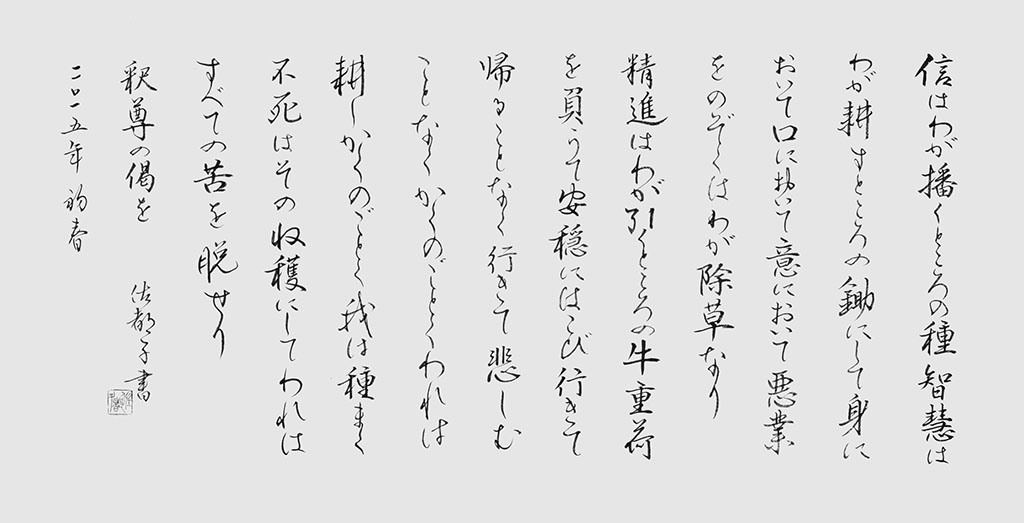 信はわが播くところの種智慧は
わが耕すところの鋤にして身に
おいて口に於いて意において悪業
をのぞくはわが除草なり
精進はわが引くところの牛重荷
を負うて安穏にはこび行きて
帰ることなく行きて悲しむ
ことなくかくのごとくわれは
耕しかくのごとく我は種まく
不死はその収穫にしてわれは
すべての苦を脱せり
釈尊の偈を
佐都子書
二〇一五年 初春